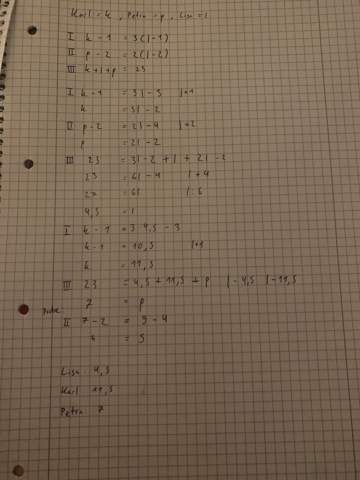 Karl = k , Petra = p , Lisa = l
I k - 1 = 3(l-1)
II p - 2 = 2(l-2)
III k+l+p = 23
I k - 1 = 3l - 3 |+1
k = 3l - 2
II p - 2 = 2l - 4 |+2
p = 2l - 2
III 23 = 3l - 2 + l + 2l - 2
23 = 6l - 4 | + 4
27 = 6l |: 6
4,5 = l
I k - 1 = 3 4,5 - 3
k - 1 = 10,5 |+1
k = 11,5
III 23 = 4,5 + 11,5 + p |- 4,5 |- 11,5
7 = p
Probe
II 7 - 2 = 9 - 4
= 5
Lisa 4,5
Karl 11,5
Petra 7